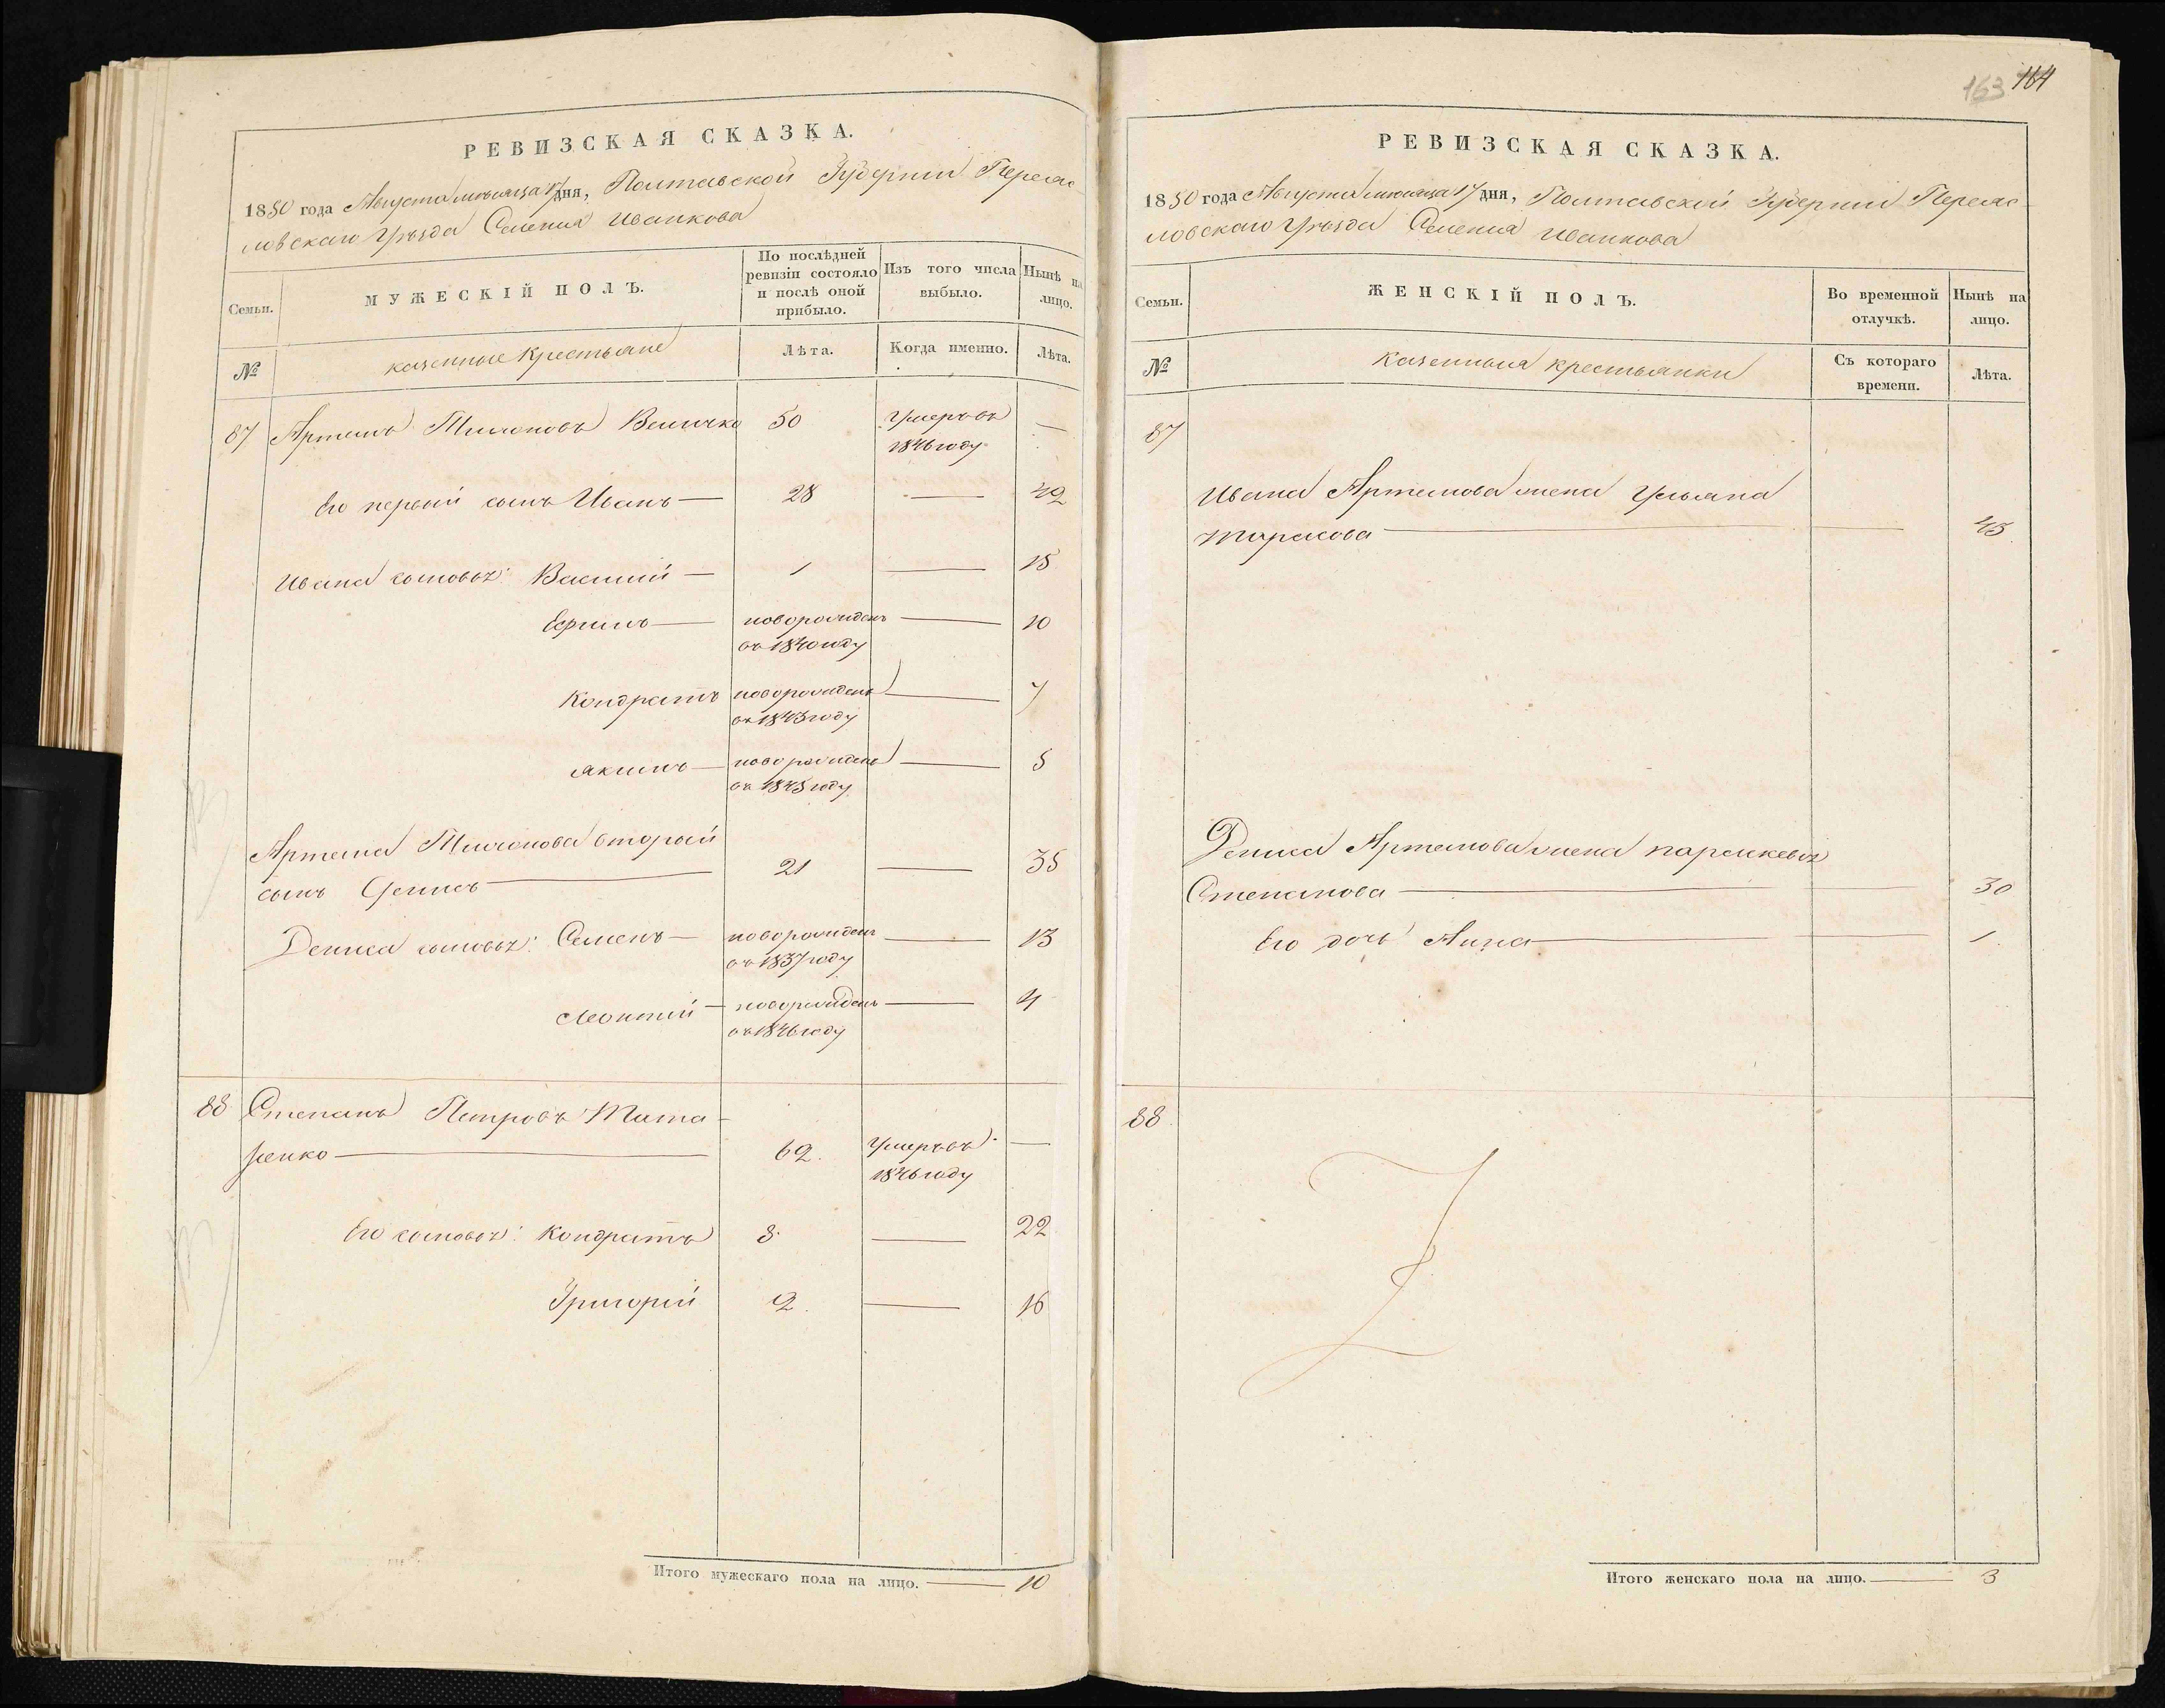 РЕВИЗСКАЯ СКАЗКА.
1850 года Августа мѣсяца 17 дня, Полтавской Губерніи Переяс-
ловскаго Уѣзда Селенія Иванкова
Семьи.
МУЖЕСКІЙ ПОЛЪ.
По послѣдней ревизіи состояло и послѣ оной прибыло.
Изъ того числа выбыло.
Нынѣ на лицо.
№
казенные Крестьяне
Лѣта.
Когда именно.
Лѣта.
87 Артемъ Тимоновъ Величко 50 Умеръ въ —
1846 году
Его первый сынъ Иванъ — 28 — 42
Ивана сыновья: Василий — 1 — 15
Ефимъ — новорожденъ — 10
въ 1840 году
Кондратъ новорожденъ — 7
въ 1843 году
Якимъ — новорожденъ — 5
въ 1845 году
Артема Тимонова второй
сынъ Денисъ — 21 — 35
Дениса сыновья: Семенъ — новорожденъ — 13
въ 1837 году
Леонтий — новорожденъ — 4
въ 1846 году
88 Степанъ Петровъ Тата-
ренко — 62. Умеръ въ —
1846 году
Его сыновья: Кондратъ 8 — 22
Григорій 2. — 16
Итого мужескаго пола на лицо. — 10
163 164
РЕВИЗСКАЯ СКАЗКА.
1850 года Августа мѣсяца 17 дня, Полтавской Губерніи Переяс-
ловскаго Уѣзда Селенія Иванкова
Семьи.
ЖЕНСКІЙ ПОЛЪ.
Во временной отлучкѣ.
Нынѣ на лицо.
№
Казенныя крестьянки
Съ котораго времени.
Лѣта.
87
Ивана Артемова жена Ульяна
Тарасова — — 45
Дениса Артемова жена Параскевья
Степанова — 30
Его дочь Анна — — 1
88.
Итого женскаго пола на лицо. — 3